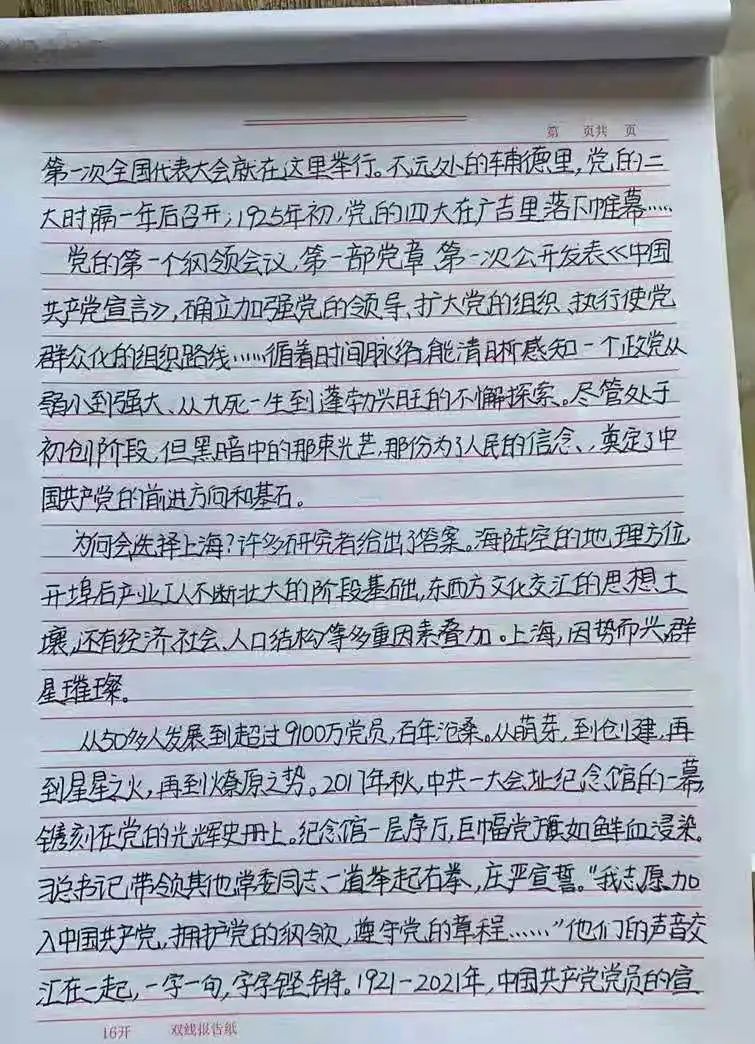 第 页共 页
第一次全国代表大会就在这里举行。不远处的辅德里,党的二
大时隔一年后召开;1925年初,党的四大在广吉里落下帷幕……
党的第一个纲领会议、第一部党章、第一次公开发表《中国
共产党宣言》,确立加强党的领导、扩大党的组织、执行使党
群众化的组织路线……循着时间脉络,能清晰感知一个政党从
弱小到强大、从九死一生到蓬勃兴旺的不懈探索。尽管处于
初创阶段,但黑暗中的那束光芒,那份为了人民的信念、,奠定了中
国共产党的前进方向和基石。
为何会选择上海?许多研究者给出了答案。海陆空的地理方位,
开埠后产业工人不断壮大的阶段基础,东西方文化交汇的思想土
壤,还有经济、社会、人口结构等多重因素叠加。上海,因势而兴,群
星璀璨。
从50多人发展到超过9100万党员,百年沧桑。从萌芽,到创建,再
到星星之火,再到燎原之势。2017年秋,中共一大会址纪念馆的一幕,
镌刻在党的光辉史册上。纪念馆一层序厅,巨幅党旗如鲜血浸染。
习总书记带领其他常委同志、一道举起右拳,庄严宣誓。“我志愿加
入中国共产党,拥护党的纲领,遵守党的章程……”他们的声音交
汇在一起,一字一句,字字铿锵。1921-2021年,中国共产党党员的宣
16开 双线报告纸